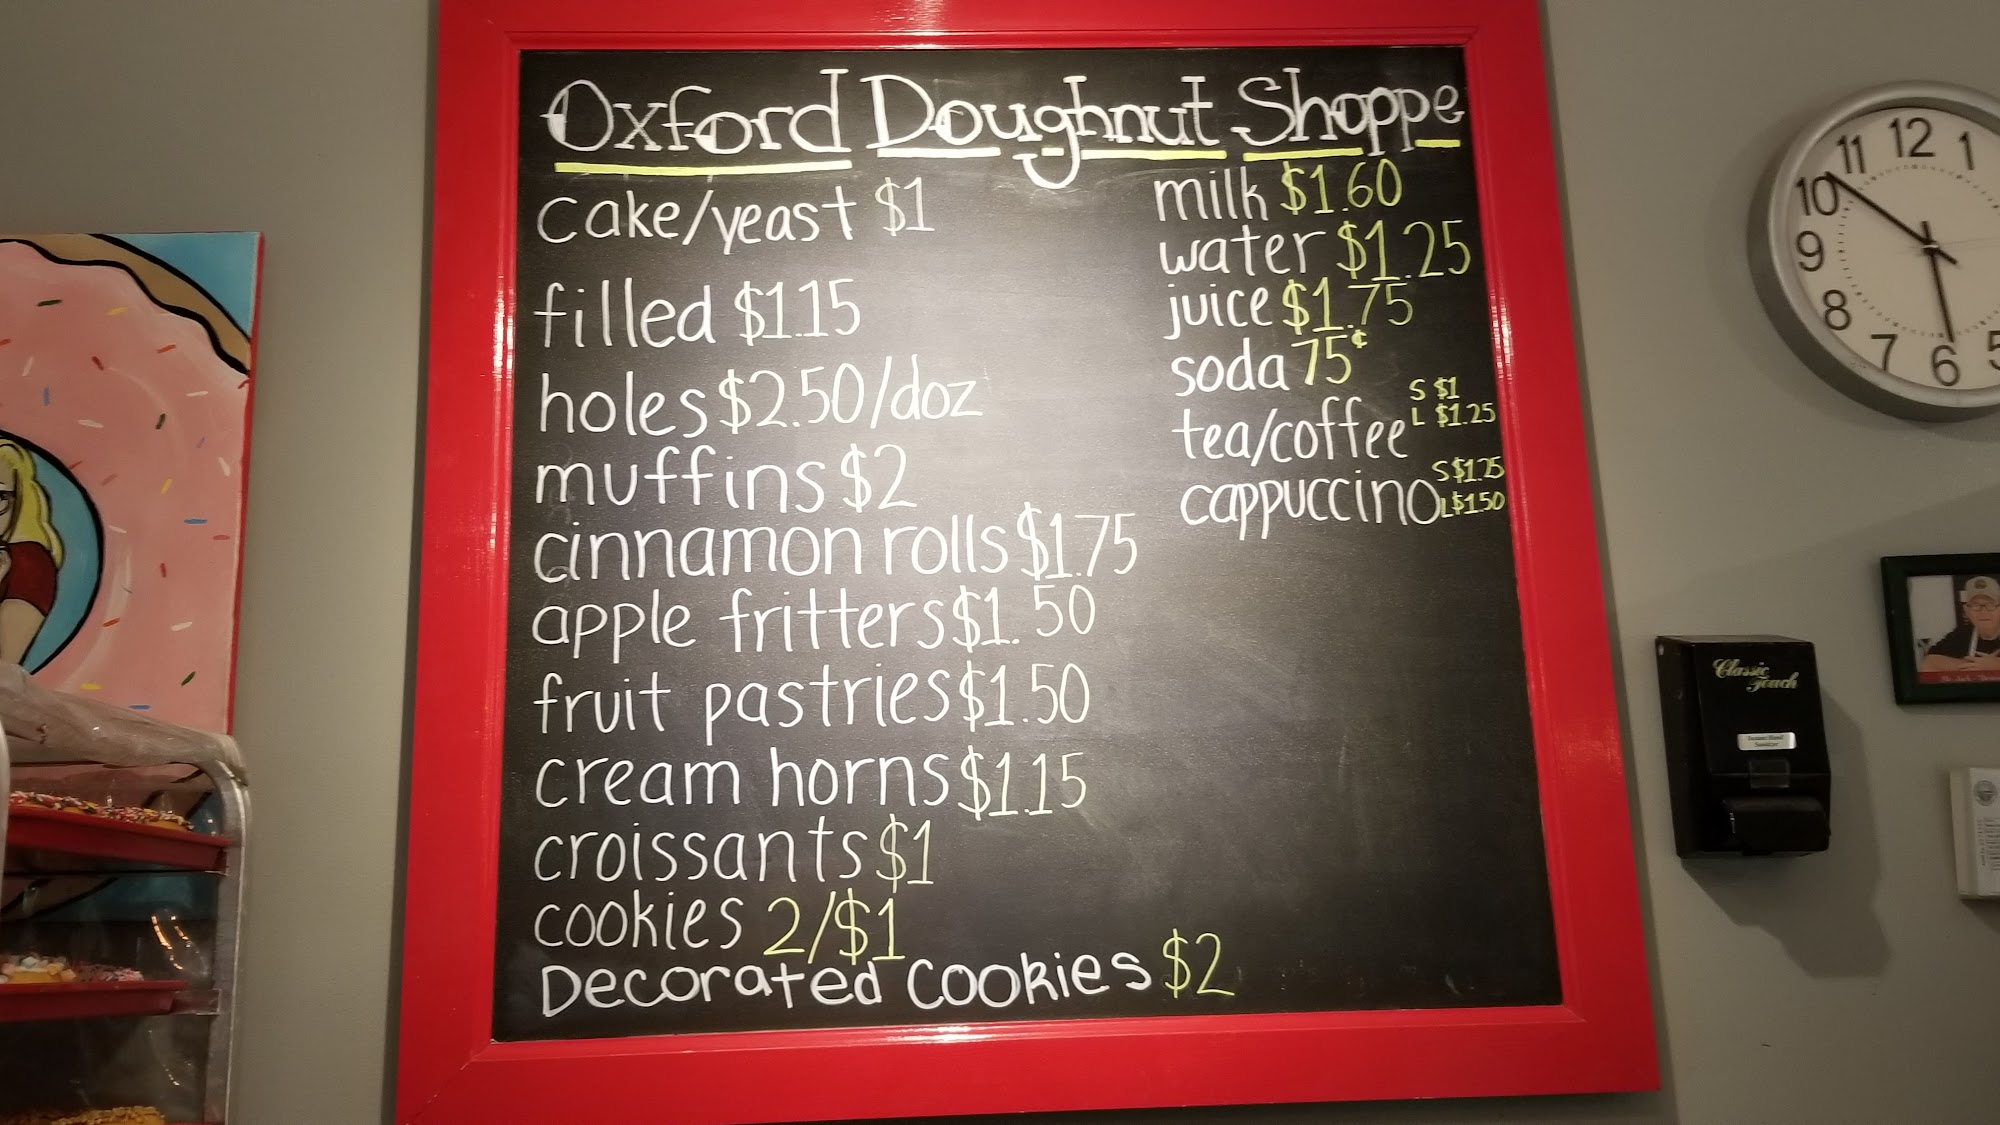 Oxford Doughnut Shoppe
cake/yeast $1
filled $1.15
holes $2.50/doz
muffins $2
cinnamon rolls $1.75
apple fritters $1.50
fruit pastries $1.50
cream horns $1.15
croissants $1
cookies 2/$1
Decorated Cookies $2
milk $1.60
water $1.25
juice $1.75
soda 75¢
tea/coffee S $1
L $1.25
cappuccino S $1.25
L $1.50
11 12 1
10
9
8
7 6 5
Classic Touch
Instant Hand
Sanitizer